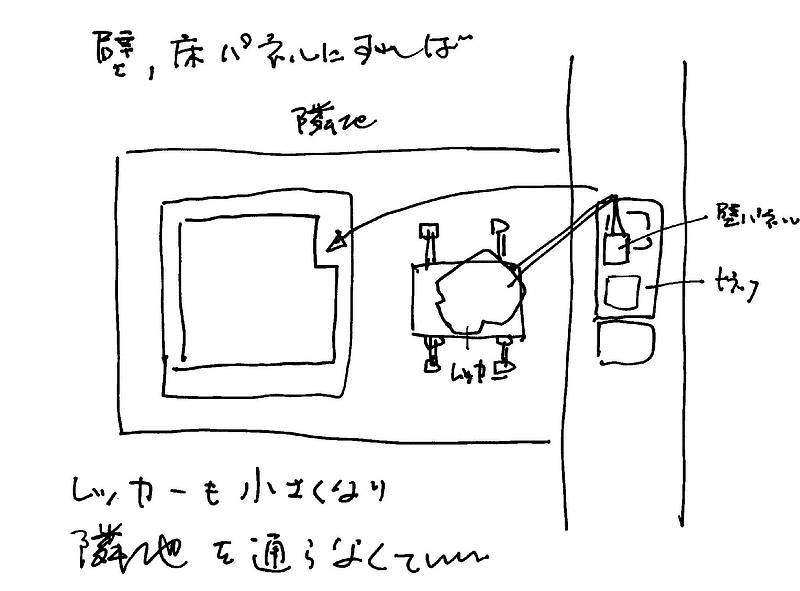 壁,床パネルにすれば
隣地
壁パネル
トラック
レッカー
レッカーも小さくなり
隣地を通らなくていい